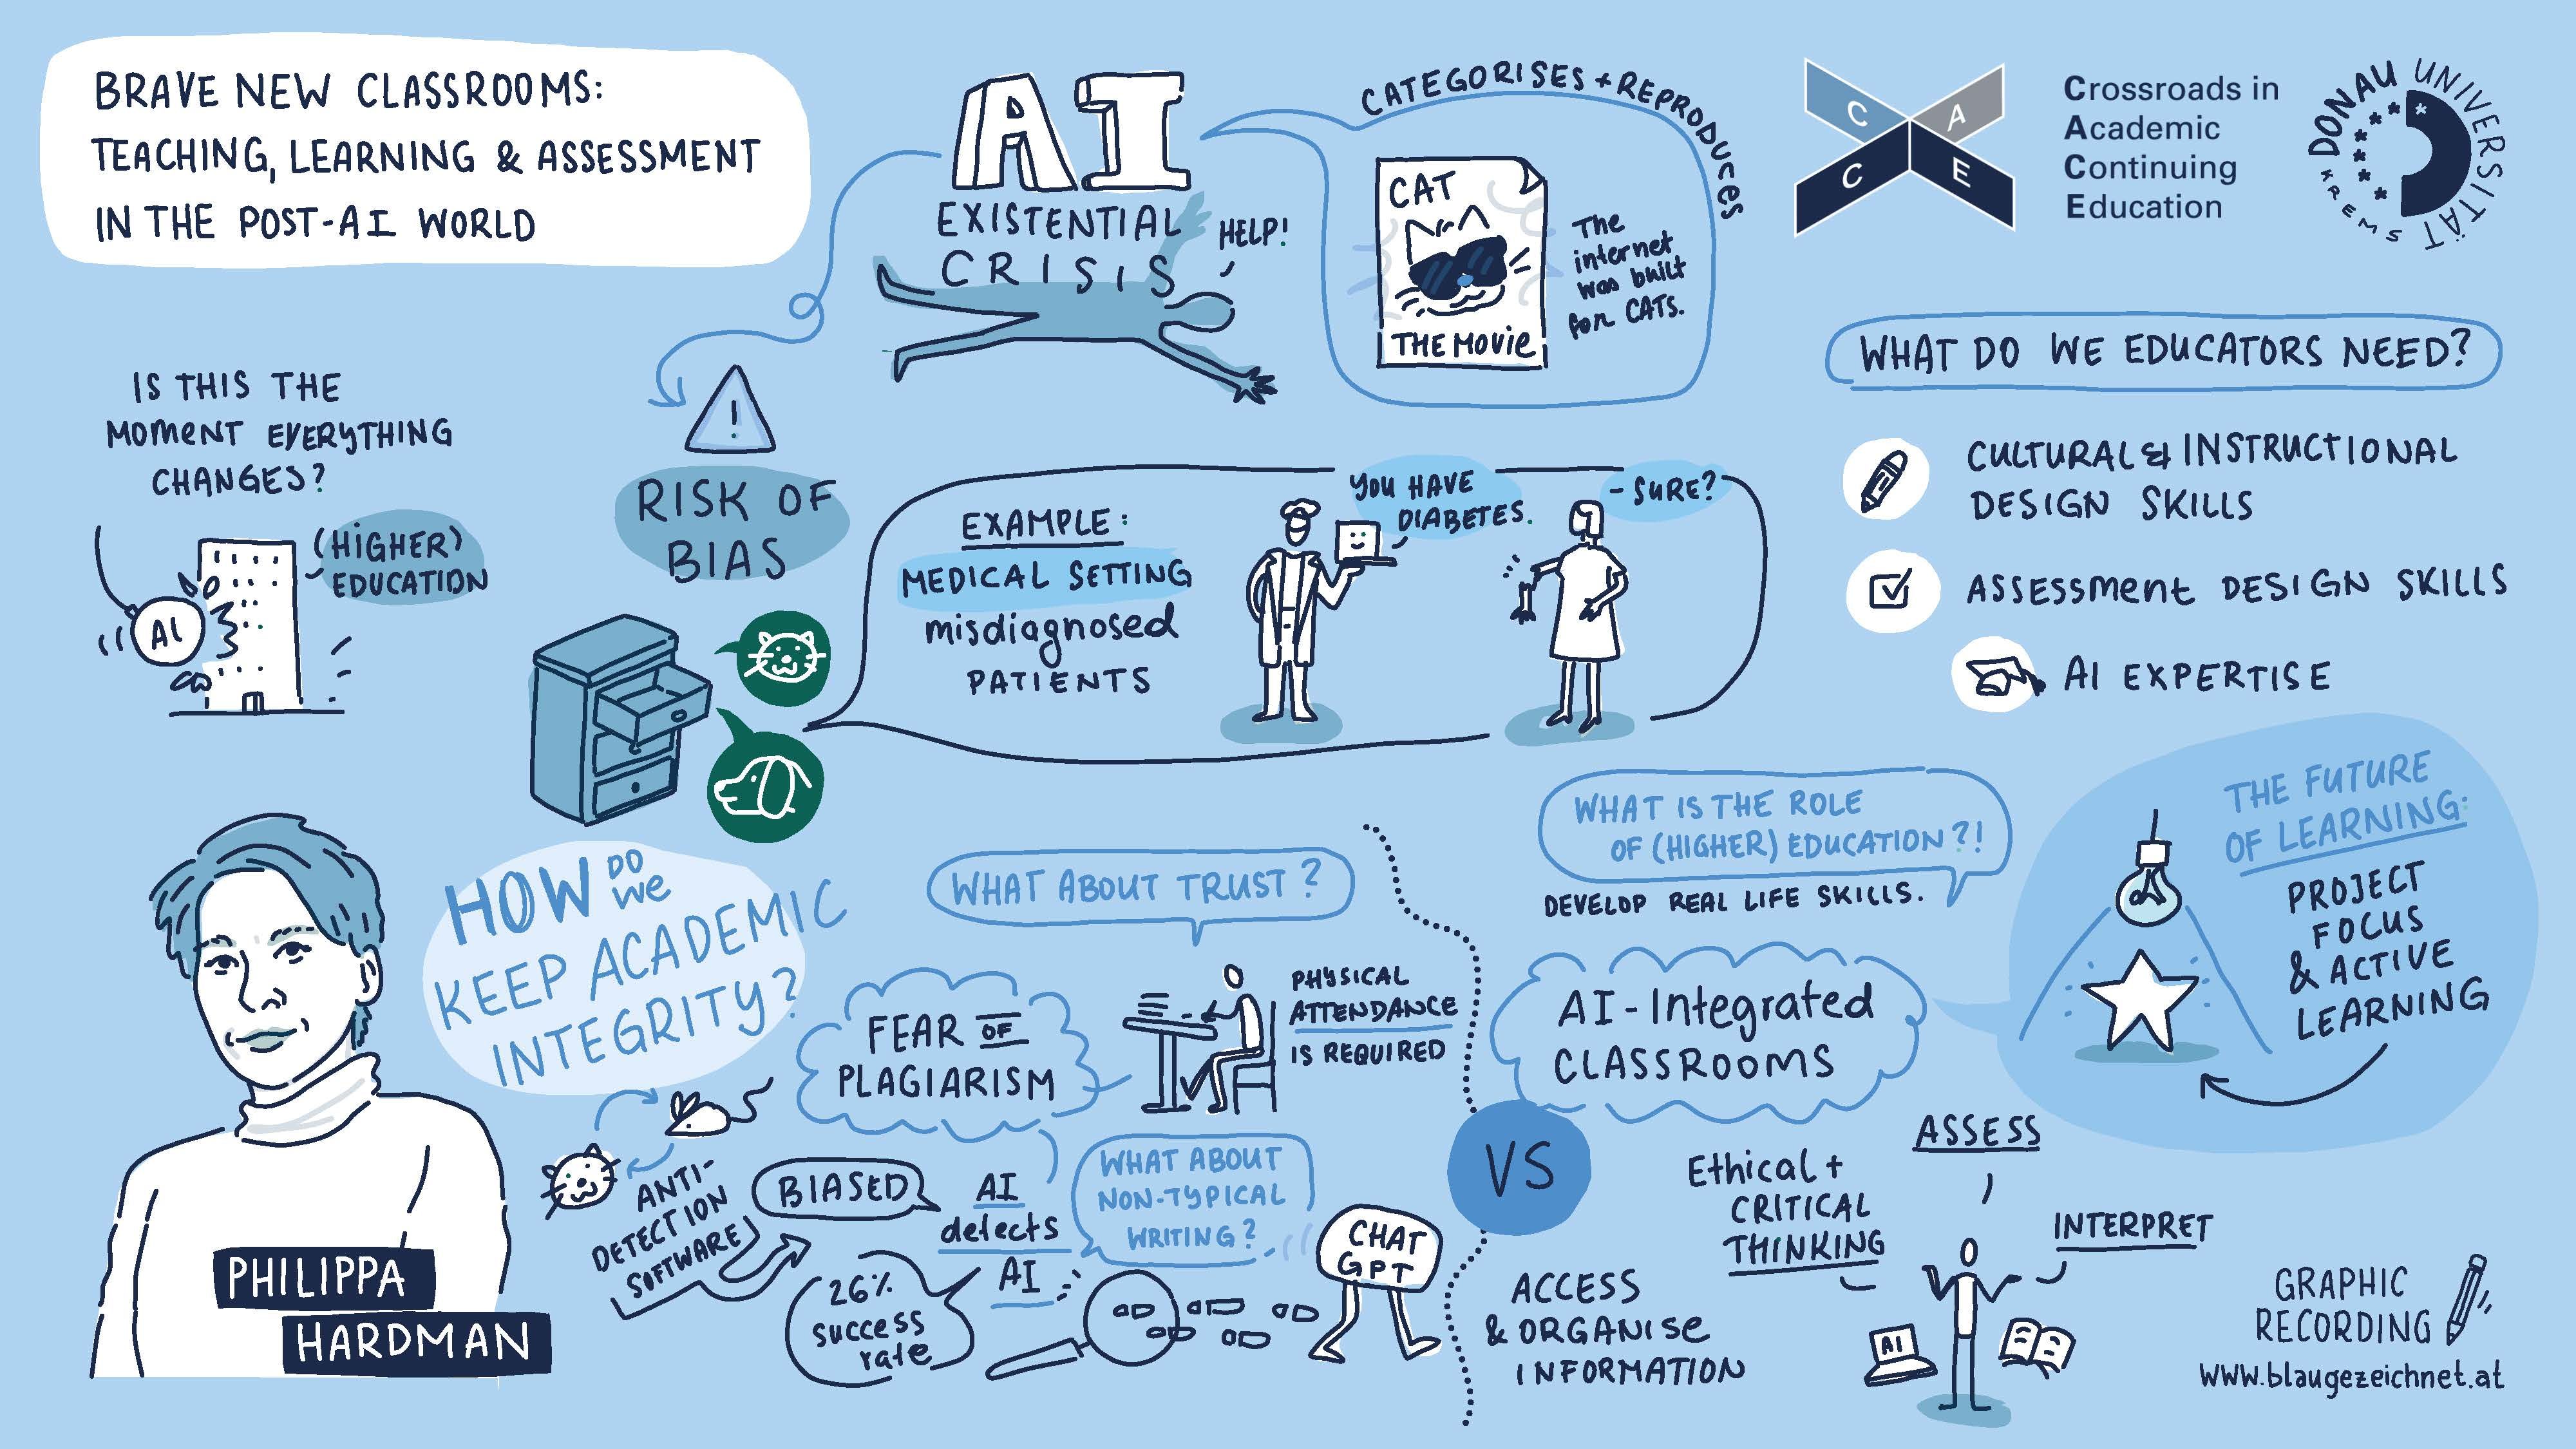 BRAVE NEW CLASSROOMS:
TEACHING, LEARNING & ASSESSMENT
IN THE POST-AI WORLD
AI
EXISTENTIAL
CRISIS
HELP!
CATEGORISES + REPRODUCES
CAT
THE MOVIE
The
internet
was built
for CATS.
C A C E
Crossroads in
Academic
Continuing
Education
DONAU UNIVERSITÄT
KREMS
IS THIS THE
MOMENT EVERYTHING
CHANGES?
(HIGHER)
EDUCATION
AI
!
RISK OF
BIAS
EXAMPLE:
MEDICAL SETTING
misdiagnosed
PATIENTS
YOU HAVE
DIABETES.
- SURE?
WHAT DO WE EDUCATORS NEED?
CULTURAL & INSTRUCTIONAL
DESIGN SKILLS
ASSESSMENT DESIGN SKILLS
AI EXPERTISE
PHILIPPA
HARDMAN
HOW DO
WE
KEEP ACADEMIC
INTEGRITY?
WHAT ABOUT TRUST?
FEAR OF
PLAGIARISM
PHYSICAL
ATTENDANCE
IS REQUIRED
ANTI-
DETECTION
SOFTWARE
BIASED
AI
detects
AI
26%
success
rate
WHAT ABOUT
NON-TYPICAL
WRITING?
CHAT
GPT
VS
WHAT IS THE ROLE
OF (HIGHER) EDUCATION?!
DEVELOP REAL LIFE SKILLS.
AI-Integrated
CLASSROOMS
THE FUTURE
OF LEARNING:
PROJECT
FOCUS
& ACTIVE
LEARNING
AI
ASSESS
Ethical +
CRITICAL
THINKING
INTERPRET
ACCESS
& ORGANISE
INFORMATION
AI
GRAPHIC
RECORDING
www.blaugezeichnet.at